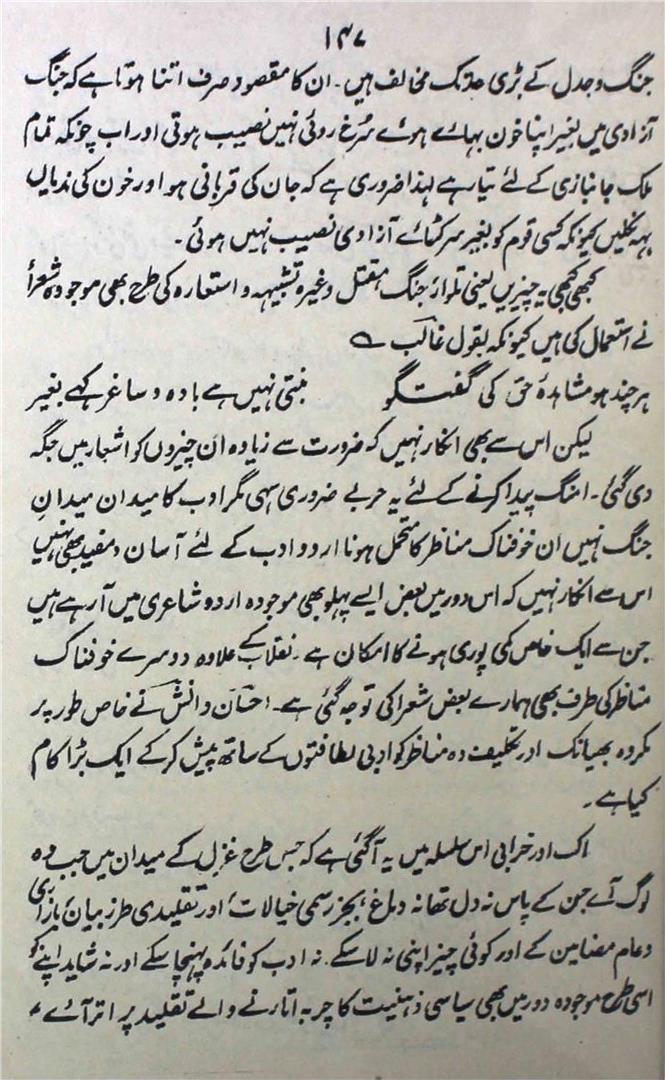 ۱۴۷
جنگ و جدل کے بڑی حد تک مخالف ہیں۔ ان کا مقصود صرف اتنا ہوتا ہے کہ جنگ
آزادی میں بغیر اپنا خون بہائے ہوئے سُرخ روئی نہیں نصیب ہوتی اور اب چونکہ تمام
ملک جانبازی کے لئے تیار ہے لہذا ضروری ہے کہ جان کی قربانی ہو اور خون کی ندیاں
بہہ نکلیں کیونکہ کسی قوم کو بغیر سر کٹائے آزادی نصیب نہیں ہوئی۔
کبھی کبھی یہ چیزیں یعنی تلوار، جنگ، مقتل وغیرہ تشبیہہ و استعارہ کی طرح بھی موجودہ شعرأ
نے استعمال کی ہیں کیونکہ بقول غالب ؎
ہر چند ہو مشاہدۂ حق کی گفتگو بنتی نہیں ہے بادہ و ساغر کہے بغیر
لیکن اس سے بھی انکار نہیں کہ ضرورت سے زیادہ ان چیزوں کو اشعار میں جگہ
دی گئی۔ امنگ پیدا کرنے کے لئے یہ حربے ضروری سہی مگر ادب کا میدان میدانِ
جنگ نہیں ان خوفناک مناظر کا متحمل ہونا اردو ادب کے لئے آسان و مفید بھی نہیں
اس سے انکار نہیں کہ اس دور میں بعض ایسے پہلو بھی موجودہ اردو شاعری میں آ رہے ہیں
جن سے ایک خاص کمی پوری ہونے کا امکان ہے۔ انقلاب کے علاوہ دوسرے خوفناک
مناظر کی طرف بھی ہمارے بعض شعرا کی توجہ گئی ہے۔ احسان دانش نے خاص طور پر
مکروہ بھیانک اور تکلیف دہ مناظر کو ادبی لطافتوں کے ساتھ پیش کرکے ایک بڑا کام
کیا ہے۔
اک اور خرابی اس سلسلہ میں یہ آ گئی ہے کہ جس طرح غزل کے میدان میں جب وہ
لوگ آئے جن کے پاس نہ دل تھا نہ دماغ، بجز رسمی خیالات، اور تقلیدی طرز بیان، بازاری
و عام مضامین کے اور کوئی چیز اپنی نہ لا سکے۔ نہ ادب کو فائدہ پہنچا سکے اور نہ شاید اپنے کو
اسی طرح موجودہ دور میں بھی سیاسی ذہنیت کا چربہ اتارنے والے تقلید پر اتر آئے،